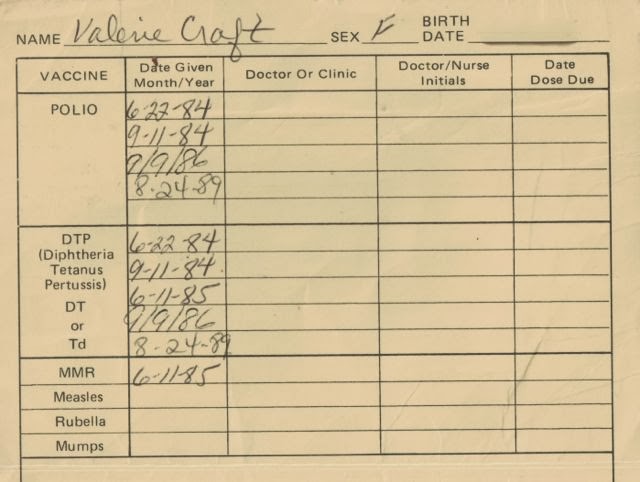 NAME Valerie Craft SEX F BIRTH DATE
VACCINE Date Given Month/Year Doctor Or Clinic Doctor/Nurse Initials Date Dose Due
POLIO 6-22-84
9-11-84
9/9/86
8-24-89
DTP 6-22-84
(Diphtheria 9-11-84
Tetanus
Pertussis) 6-11-85
DT 9/9/86
or
Td 8-24-89
MMR 6-11-85
Measles
Rubella
Mumps